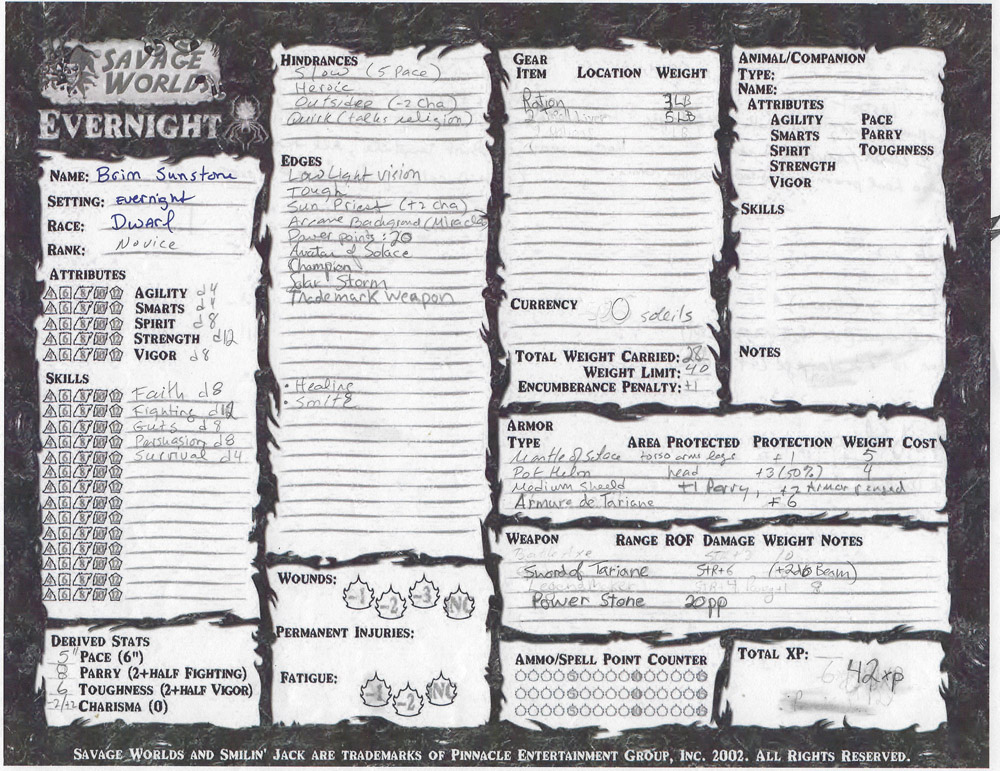 SAVAGE WORLDS
EVERNIGHT
NAME: Brim Sunstone
SETTING: Evernight
RACE: Dwarf
RANK: Novice
ATTRIBUTES
AGILITY d4
SMARTS d4
SPIRIT d8
STRENGTH d12
VIGOR d8
SKILLS
Faith d8
Fighting d12
Guts d8
Persuasion d8
Survival d4
DERIVED STATS
5" PACE (6")
8 PARRY (2+HALF FIGHTING)
6 TOUGHNESS (2+HALF VIGOR)
-2/+2 CHARISMA (0)
HINDRANCES
Slow (5 Pace)
Heroic
Outsider (-2 Cha)
Quirk (talks religion)
EDGES
Low Light vision
Tough
Sun Priest (+2 Cha)
Arcane Background (Miracles)
Power points: 20
Avatar of Solace
Champion
Solar Storm
Trademark Weapon
• Healing
• Smite
WOUNDS: -1 -2 -3 INC
PERMANENT INJURIES:
FATIGUE: -1 -2 INC
GEAR
ITEM LOCATION WEIGHT
Ration 3LB
2 5LB
CURRENCY
0 soleils
TOTAL WEIGHT CARRIED: 28
WEIGHT LIMIT: 40
ENCUMBERANCE PENALTY: +1
ANIMAL/COMPANION
TYPE:
NAME:
ATTRIBUTES
AGILITY PACE
SMARTS PARRY
SPIRIT TOUGHNESS
STRENGTH
VIGOR
SKILLS
NOTES
ARMOR
TYPE AREA PROTECTED PROTECTION WEIGHT COST
Mantle of Solace torso arms legs +1 5
Pot Helm head +3 (50%) 4
Medium Shield +1 Parry, +2 Armor ranged
Armure de Tariane +6
WEAPON RANGE ROF DAMAGE WEIGHT NOTES
Battle Axe 10
Sword of Tariane STR+6 (+2d6 Beam)
8
Power Stone 20pp
AMMO/SPELL POINT COUNTER
TOTAL XP:
42 xp
SAVAGE WORLDS AND SMILIN' JACK ARE TRADEMARKS OF PINNACLE ENTERTAINMENT GROUP, INC. 2002. ALL RIGHTS RESERVED.